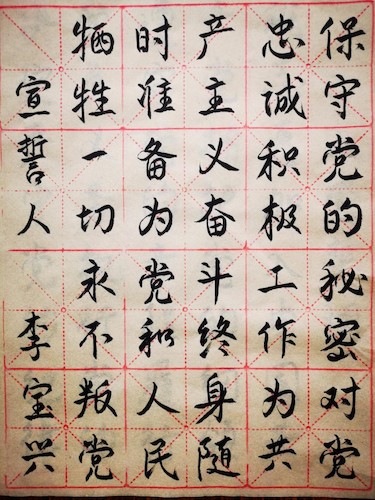 保守党的秘密对党
忠诚积极工作为共
产主义奋斗终身随
时准备为党和人民
牺牲一切永不叛党
宣誓人 李宝兴